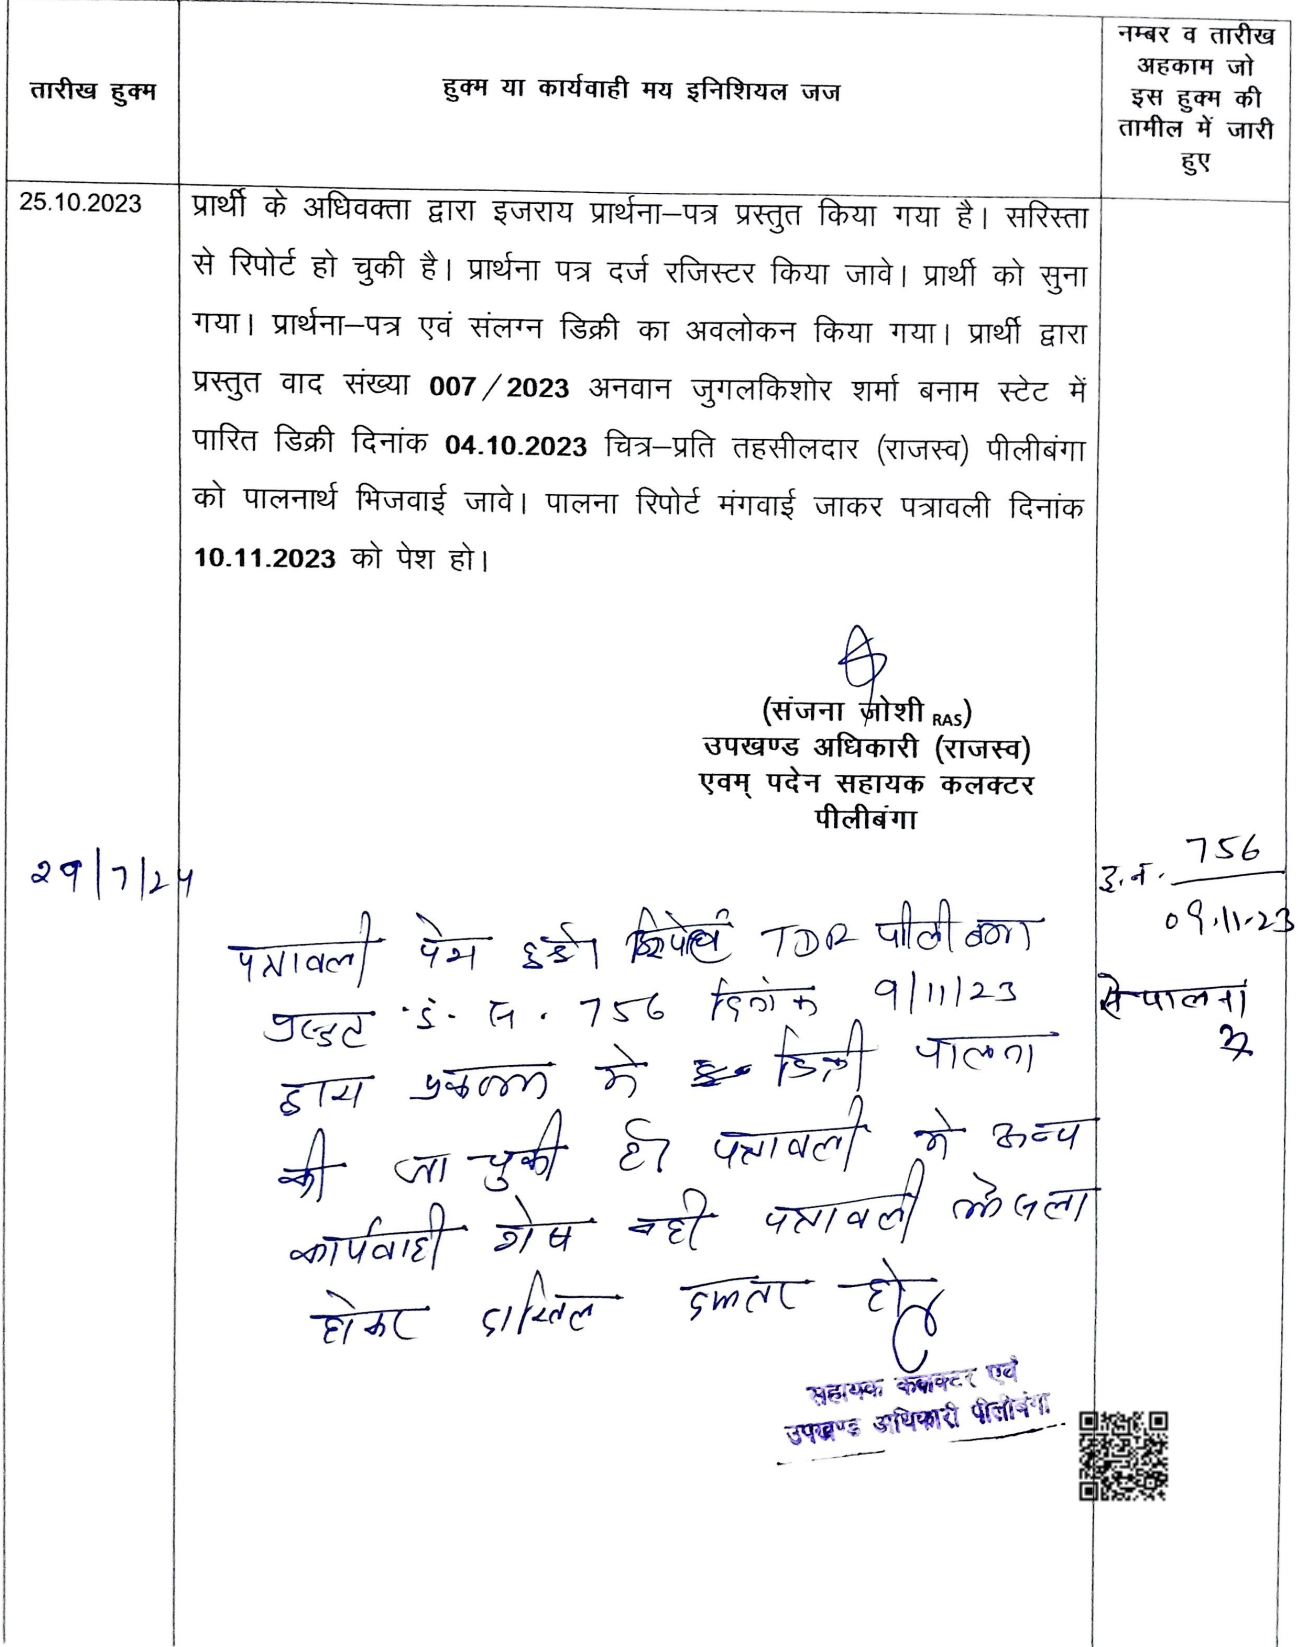 तारीख हुक्म
हुक्म या कार्यवाही मय इनिशियल जज
नम्बर व तारीख
अहकाम जो
इस हुक्म की
तामील में जारी
हुए
25.10.2023
प्रार्थी के अधिवक्ता द्वारा इजराय प्रार्थना–पत्र प्रस्तुत किया गया है। सरिस्ता
से रिपोर्ट हो चुकी है। प्रार्थना पत्र दर्ज रजिस्टर किया जावे। प्रार्थी को सुना
गया। प्रार्थना–पत्र एवं संलग्न डिक्री का अवलोकन किया गया। प्रार्थी द्वारा
प्रस्तुत वाद संख्या 007/2023 अनवान जुगलकिशोर शर्मा बनाम स्टेट में
पारित डिक्री दिनांक 04.10.2023 चित्र–प्रति तहसीलदार (राजस्व) पीलीबंगा
को पालनार्थ भिजवाई जावे। पालना रिपोर्ट मंगवाई जाकर पत्रावली दिनांक
10.11.2023 को पेश हो।
(संजना जोशी RAS)
उपखण्ड अधिकारी (राजस्व)
एवम् पदेन सहायक कलक्टर
पीलीबंगा
29/7/24
इ.न. 756
09.11.23
से पालना
पत्रावली पेश हुई। रिपोर्ट TDR पीलीबंगा
इ. न. 756 दिनांक 9/11/23
द्वारा प्रकरण में डिक्री पालना
की जा चुकी है। पत्रावली में अन्य
कार्यवाही शेष नही पत्रावली फैसला
होकर दाखिल दफ्तर हो
सहायक कलक्टर एवं
उपखण्ड अधिकारी पीलीबंगा